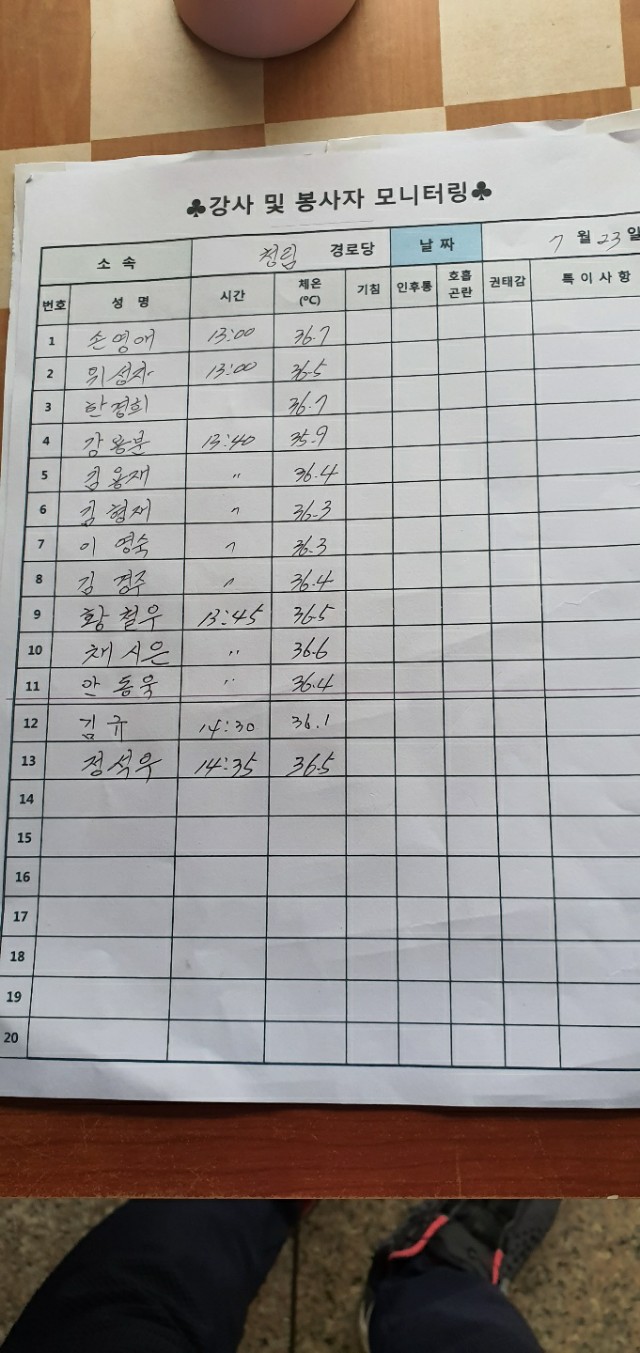 ♣강사 및 봉사자 모니터링♣
소 속 청림 경로당 날 짜 7 월 23 일
번호 성 명 시간 체온 (℃) 기침 인후통 호흡 곤란 권태감 특 이 사 항
1 손영애 13:00 36.7
2 위성자 13:00 36.5
3 한정희 36.7
4 강용분 13:40 35.9
5 김용재 〃 36.4
6 김형재 〃 36.3
7 이영숙 〃 36.3
8 김경주 〃 36.4
9 황철우 13:45 36.5
10 채시은 〃 36.6
11 안동욱 〃 36.4
12 김규 14:30 36.1
13 정석우 14:35 36.5
14
15
16
17
18
19
20